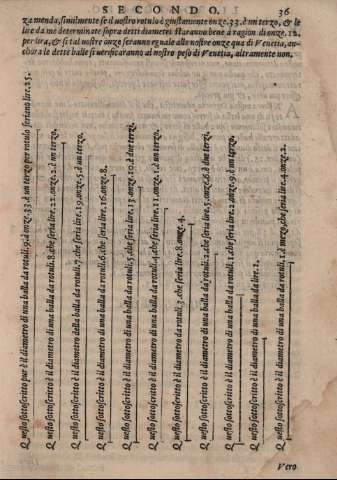 SECONDO. 36
za menda, similmente se il uostro rotulo è giustamente onze. 33. è un terzo, & le
lire da me determinate sopra detti diametri staranno bene à ragion di onze. 12.
per lira, & si tal uostre onze seranno eguale alle nostre onze qua di Venetia, an-
chora le dette balle si uerificaranno al nostro peso di Venetia, altramente non.
Questo sottoscritto pur è il diametro di una balla da rotuli. 9. à onze. 33. è un terzo per rotulo seriano lire. 25.
Questo sottoscritto è il diametro di una balla da rotuli. 8. che seria lire. 22. onze. 2. è un terzo.
Questo sottoscritto è il diametro della balla da rotuli. 7. che seria lire. 19. onze. 5. è un terzo.
Questo sottoscritto è il diametro di una balla da rotuli. 6. che seria lire. 16. onze. 8.
Questo sottoscritto è il diametro di una balla da rotuli. 5. che seria lire. 13. onze. 10. è dui terzi.
Questo sottoscritto è il diametro di una balla da rotuli. 4. che seria lire. 11. onze. 1. è un terzo.
Questo sottoscritto è il diametro di una balla da rotuli. 3. che seria lire. 8. onze. 4.
Questo sottoscritto è il diametro di una balla da rotuli. 2. che seria lire. 5. onze. 6. è dui terzi.
Questo sottoscritto è il diametro di una balla da rotuli. 1. che seria lire. 2. onze. 9. è un terzo.
Questo sottoscritto è il diametro di una balla da lire. 1.
Questo sottoscritto è il diametro di una balla da rotuli. 1. è mezzo, che seria lire. 4. onze. 2.
Vero